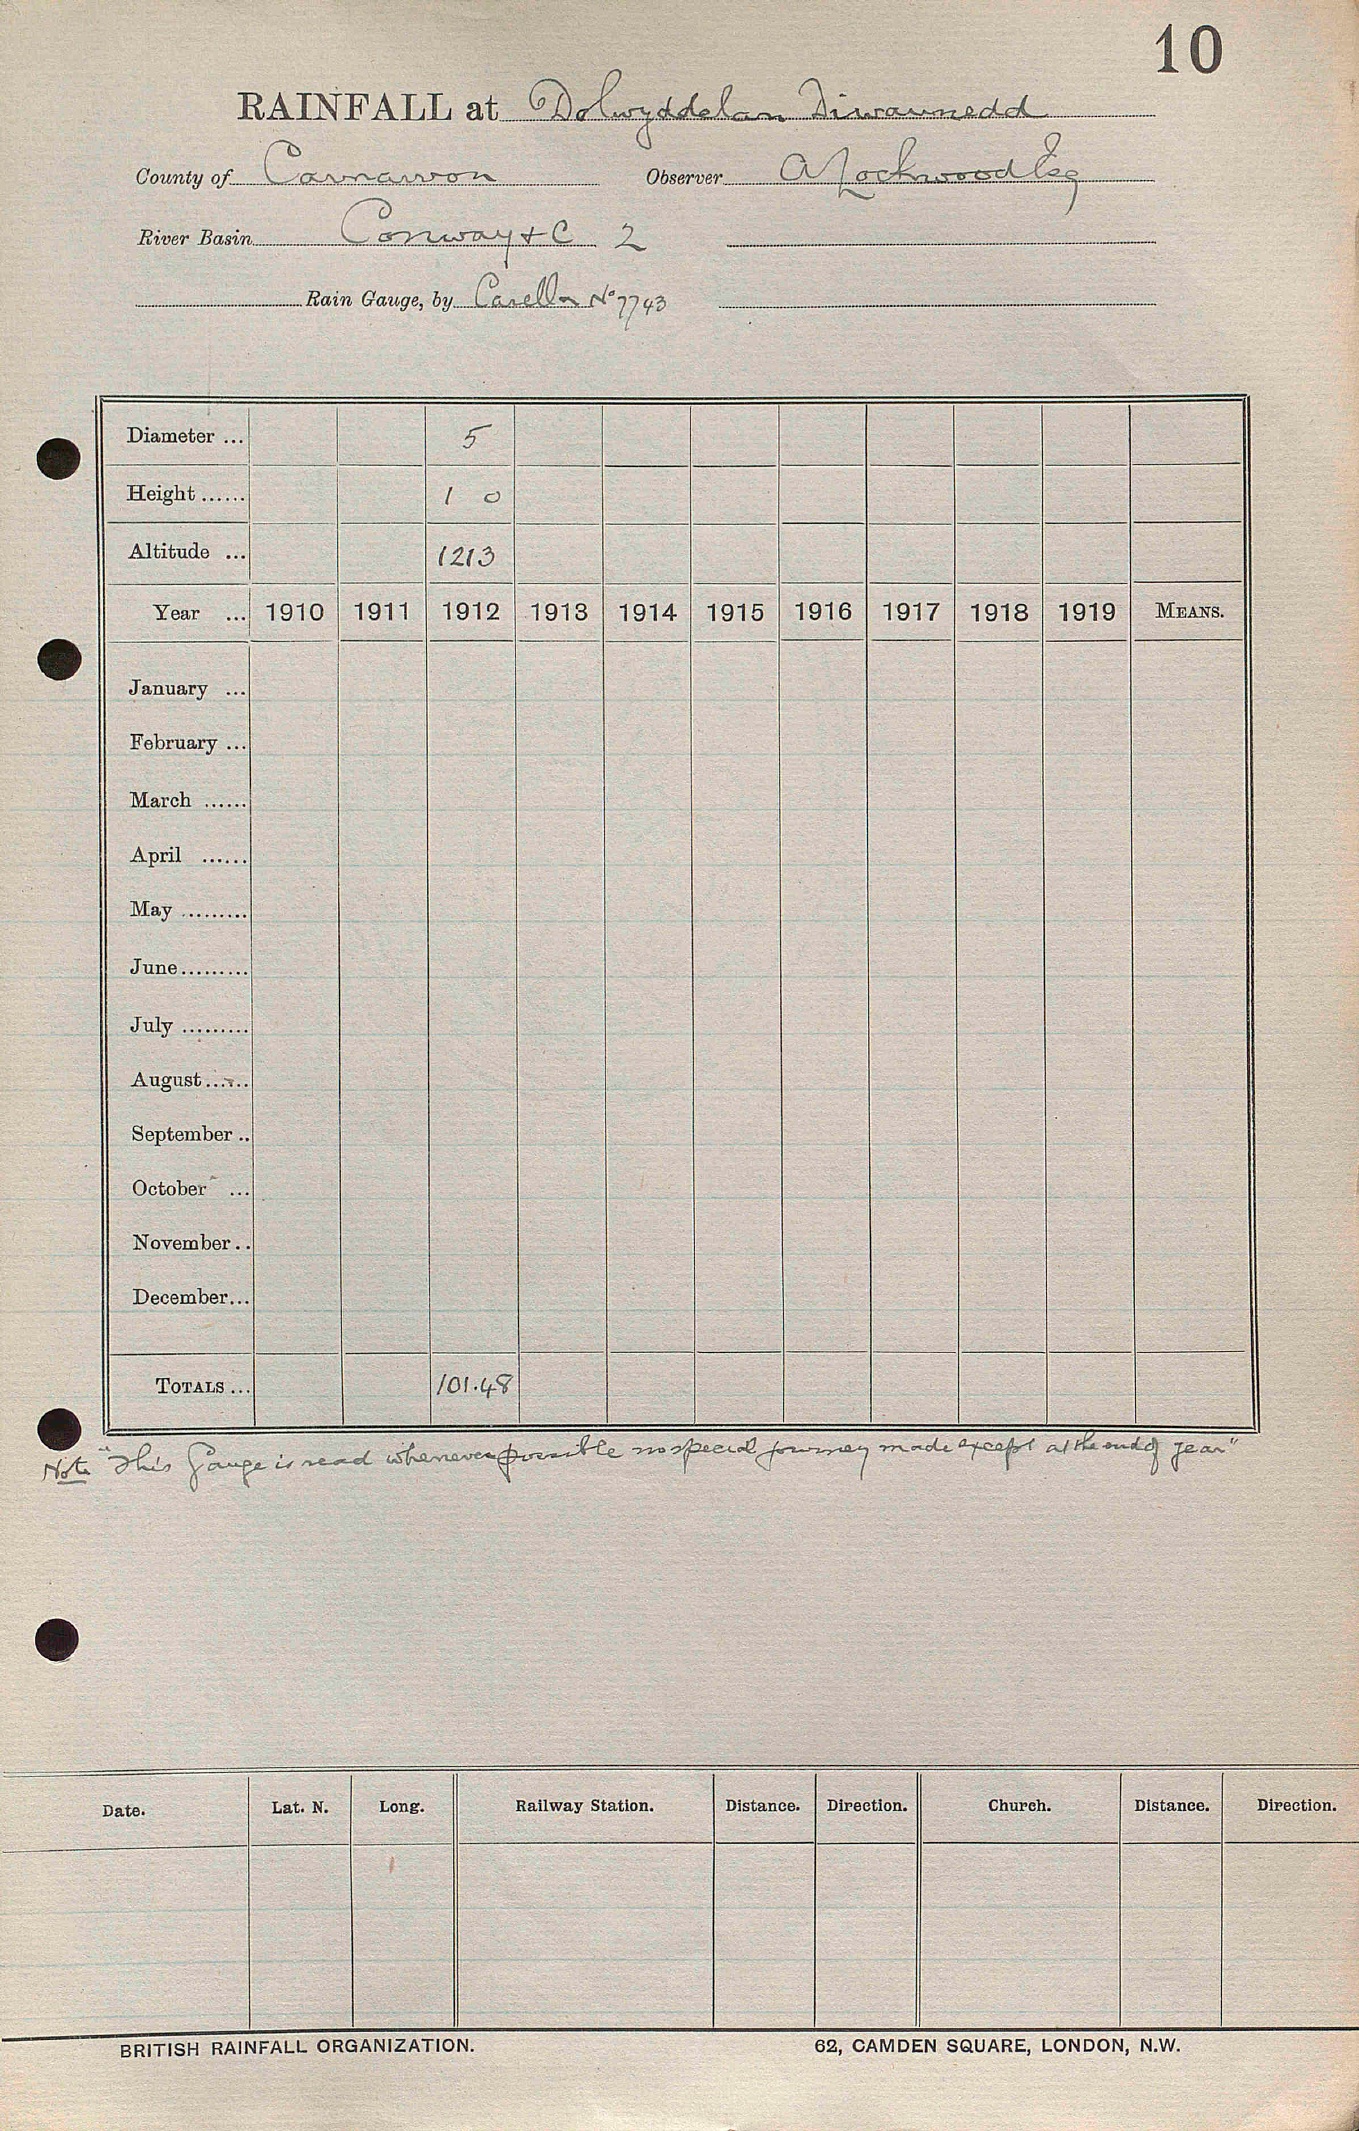 10
RAINFALL at Dolwyddelan Diwaunedd
County of Carnarvon Observer A Lockwood Esq
River Basin Conway + C 2
Rain Gauge, by Casella No 7743
Diameter ... 5
Height ...... 1 0
Altitude ... 1213
Year ... 1910 1911 1912 1913 1914 1915 1916 1917 1918 1919 MEANS.
January ...
February ...
March ......
April ......
May .........
June.........
July .........
August......
September ..
October ...
November ..
December...
TOTALS ... 101.48
Note "This Gauge is read whenever possible no special journey made except at the end of year"
Date. Lat. N. Long. Railway Station. Distance. Direction. Church. Distance. Direction.
BRITISH RAINFALL ORGANIZATION. 62, CAMDEN SQUARE, LONDON, N.W.